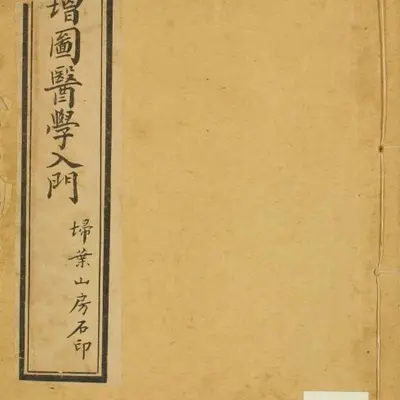 增圖醫學入門
掃葉山房石印